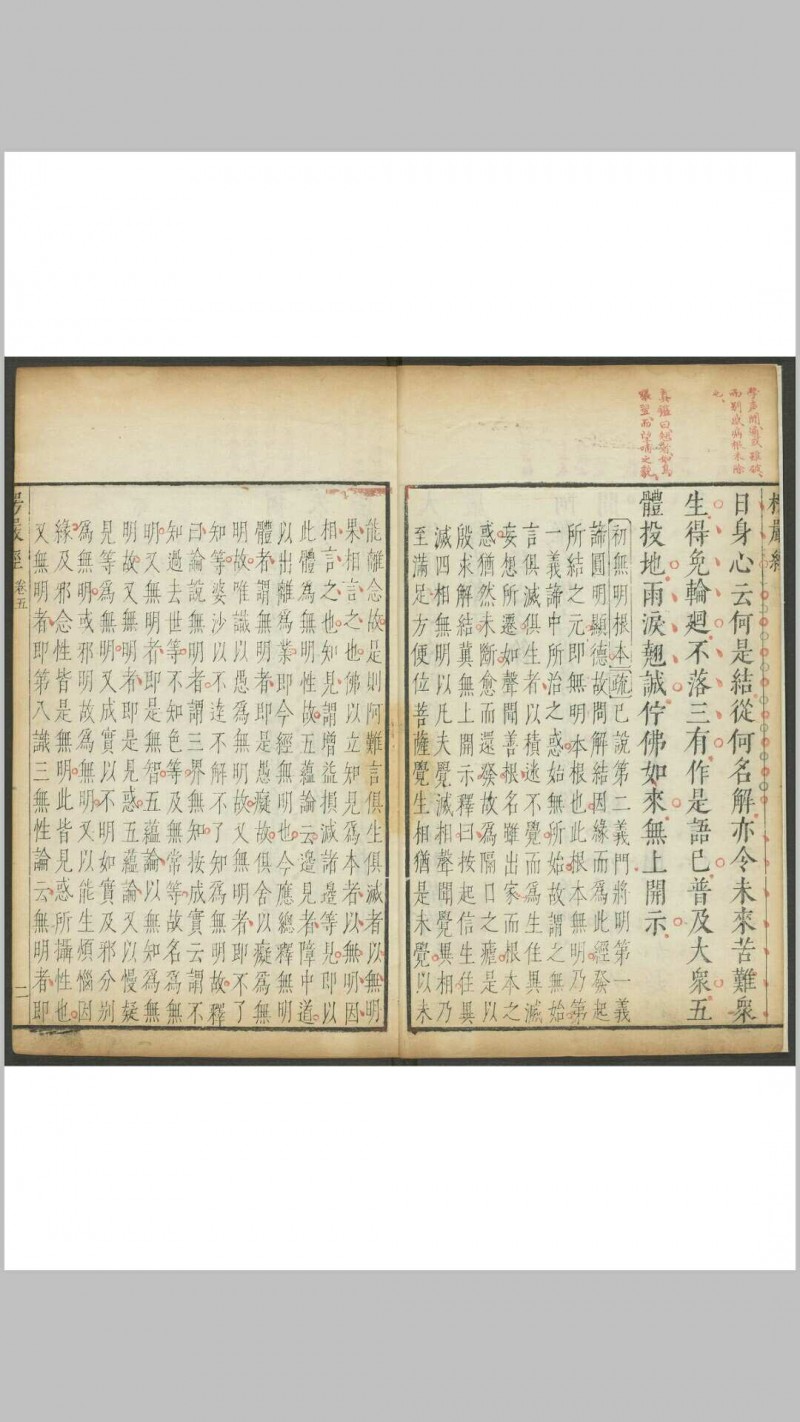 楞嚴經
日身心云何是結從何名解亦令未來苦難衆
生得免輪廻不落三有作是語已普及大衆五
體投地雨淚翹誠佇佛如來無上開示
初無明根本疏已說第二義門將明第一義
諦圓明顯德故問解結因緣而爲此經發起
所結之元即無明本根也此根本無明乃第
一義諦中所治之惑始無所始故謂之無始
言俱滅俱生者以積迷不覺而爲生住異滅
妄想所遷如聲聞善根名雖出家而根本之
惑猶然未斷愈而還發故爲隔日之瘧是以
殷求解結冀無上開示釋曰按起信生住異
滅四相無明以凡夫覺滅相聲聞覺異相乃
至滿足方便位菩薩覺生相猶是未覺以未
能離念故是則阿難言俱生俱滅者以無明
果相言之也佛以立知見爲本者以無明因
相言之也知見謂增益損減諸邊等見即以
此體為無明性故五蘊論云邊見者障中道
以出離爲業即今經無明也今應總釋無明
體者謂無明者即是愚癡故俱舍以癡爲無
明故唯識以愚為無明故又無明者即不了
知等婆沙以不達不解不了知爲無明故釋
曰論說無明者謂三界無知按成實云謂不
知過去世等不知色等及無常等故名爲無
明又無明者即是無智五蘊論以無知爲無
明故又無明者即是見惑五蘊論又以慢疑
見等為無明又成實以不明如實及邪分別
爲無明或邪明故爲無明又以能生煩惱因
緣及邪念性皆是無明此皆見惑所攝性也
又無明者即第八識三無性論云無明者即
嚴經
卷五
二